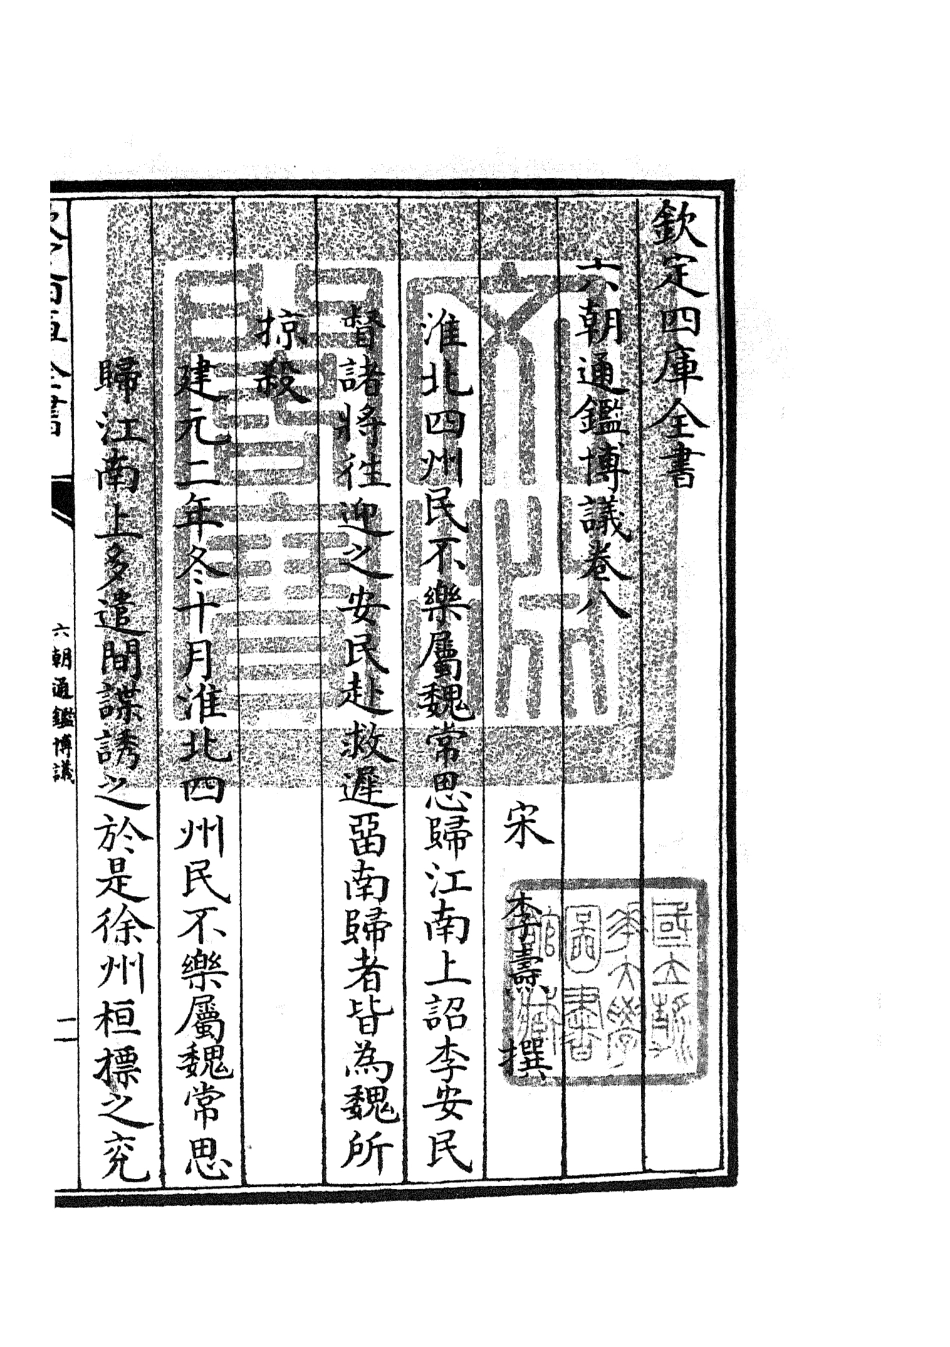 欽定四庫全書
六朝通鑑博議卷八
宋　李燾　撰
淮北四州民不樂屬魏常思歸江南上詔李安民
督諸將往迎之安民赴救遲留南歸者皆為魏所
掠殺
建元二年冬十月淮北四州民不樂屬魏常思
歸江南上多遣間諜誘之於是徐州桓摽之兖
六朝通鑑博議
國立浙
江大學
圖書
館藏